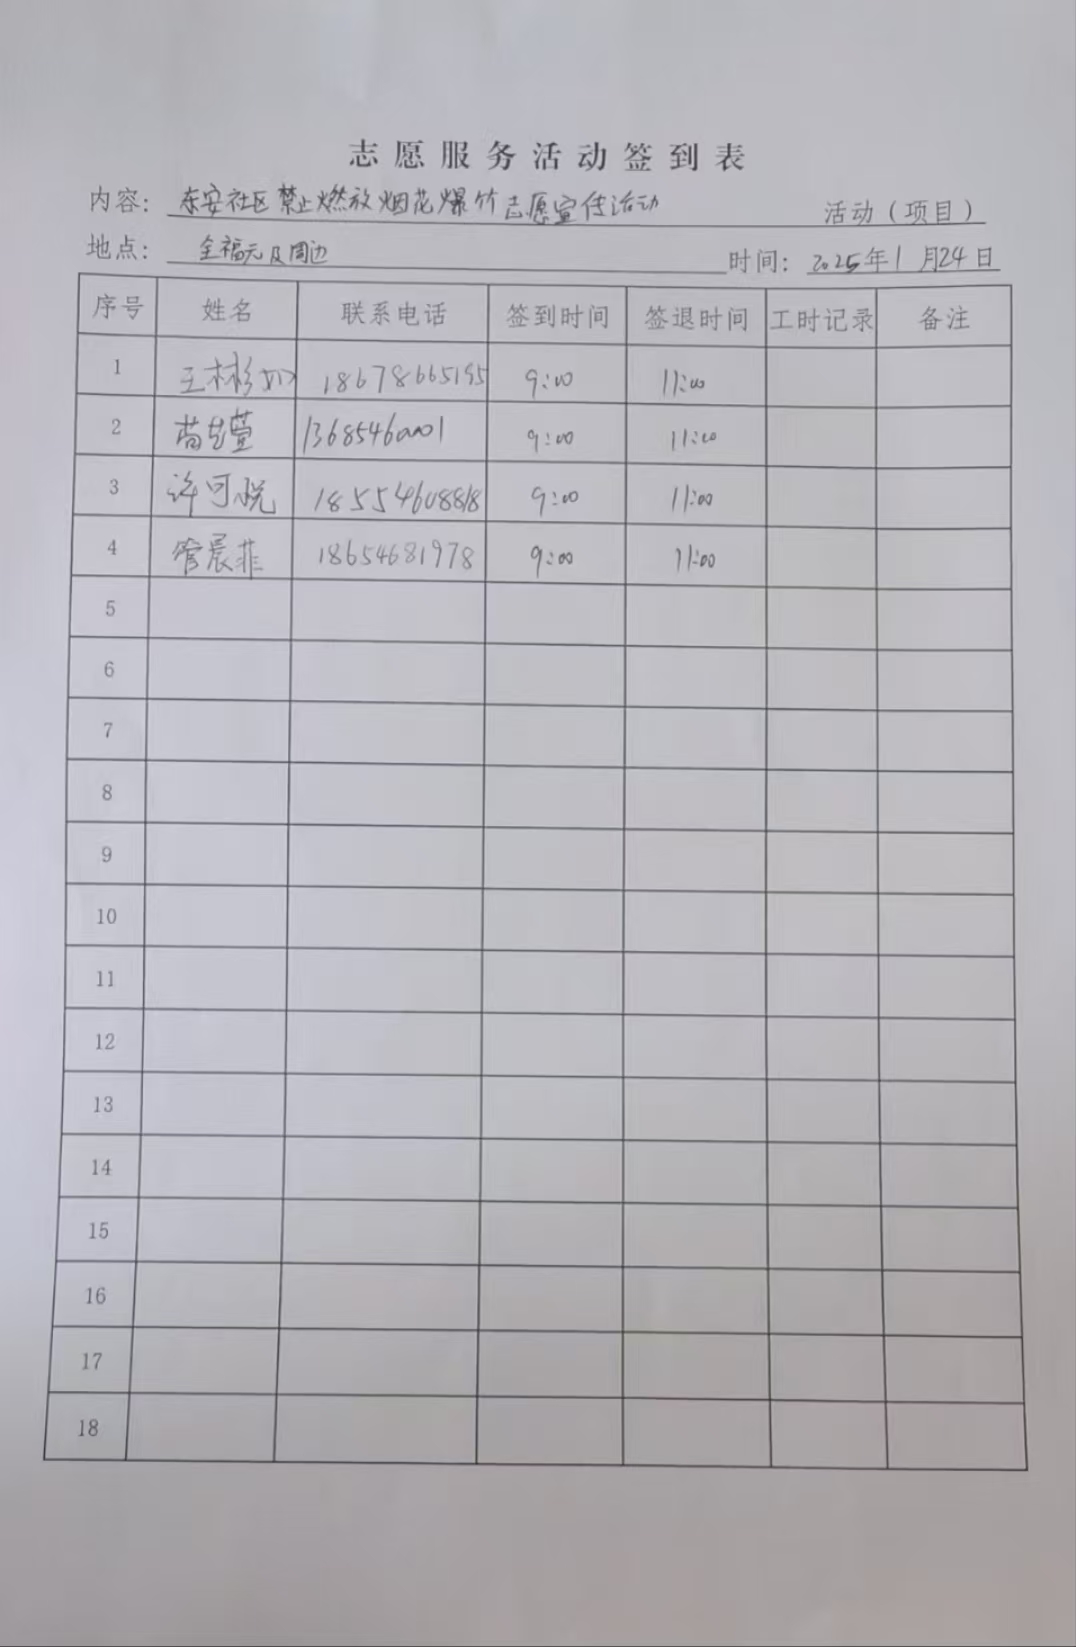 志愿服务活动签到表
内容：东安社区禁止燃放烟花爆竹志愿宣传活动 活动（项目）
地点：全福元及周边 时间：2025年1月24日
序号 姓名 联系电话 签到时间 签退时间 工时记录 备注
1 王彬 18678665195 9:00 11:00
2 萱 13685460001 9:00 11:00
3 许可悦 18554608818 9:00 11:00
4 管晨菲 18654681978 9:00 11:00
5
6
7
8
9
10
11
12
13
14
15
16
17
18